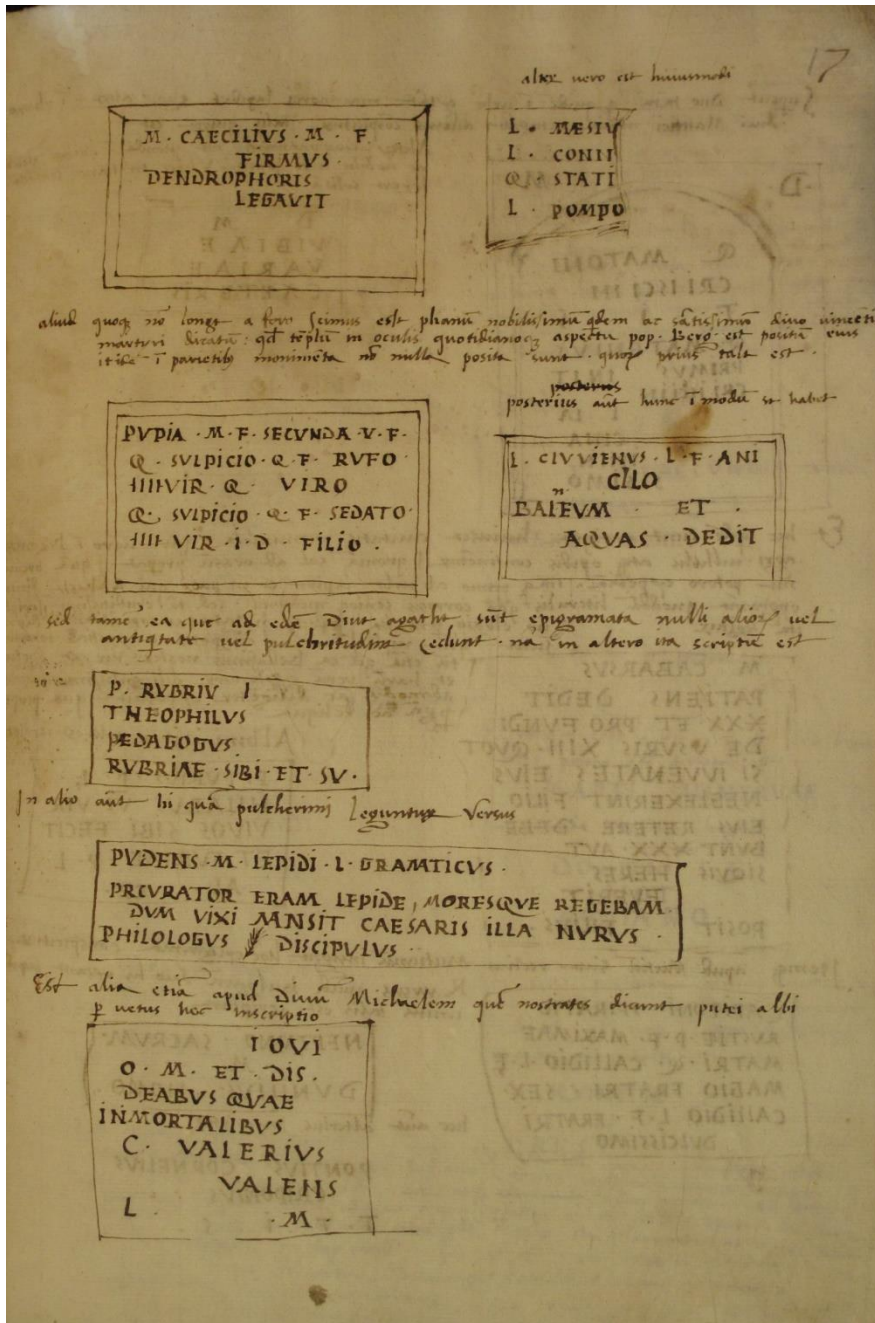 17
alter vero est huiusmodi
M · CAECILIVS · M · F
FIRMVS ·
DENDROPHORIS
LEGAVIT
L · MÆSIV
L · CONII
Q · STATI
L · POMPO
aliud quoqz nō longe a foro scimus esse phanū nobilissimū qdem ac sātissimū divo vincēti
martyri dicatū : qd tēplū in oculis quotidianoqz aspectu pop · Berg · est positū eius
itidē ī parietibz monimēta nō nulla posita sunt · quoꝝ prius tale est ·
posterius
posterius aūt hunc ī modū se habet
PVPIA · M · F · SECVNDA · V · F ·
Q · SVLPICIO · Q · F · RVFO ·
IIIIVIR · Q · VIRO
Q · SVLPICIO · Q · F · SEDATO ·
IIII VIR · I · D · FILIO ·
L · CIVVIENVS · L · F · ANI
CILO
n
BALEVM · ET ·
AQVAS · DEDIT
sed tamē ea que ad edē Divę agathę sūt epigramata nulli alioꝝ vel
antiqtate vel pulchritudine cedunt · nā in altero ita scriptū est
P · RVBRIV I
THEOPHILVS
PEDAGOGVS
RVBRIAE · SIBI · ET · SV ·
In alio aūt hi quā pulcherimi leguntur versus
PVDENS · M · LEPIDI · L · GRAMTICVS ·
PRCVRATOR ERAM LEPIDE, MORESQVE REGEBAM
DVM VIXI MNSIT CAESARIS ILLA NVRVS ·
PHILOLOGVS DISCIPVLVS ·
Est alia etiā apud Divum Michaelem quē nostrates dicunt putei albi
ꝑ vetus hec inscriptio
IOVI
O · M · ET · DIS ·
DEABVS QVAE
INMORTALIBVS
C · VALERIVS
VALENS
L · M ·